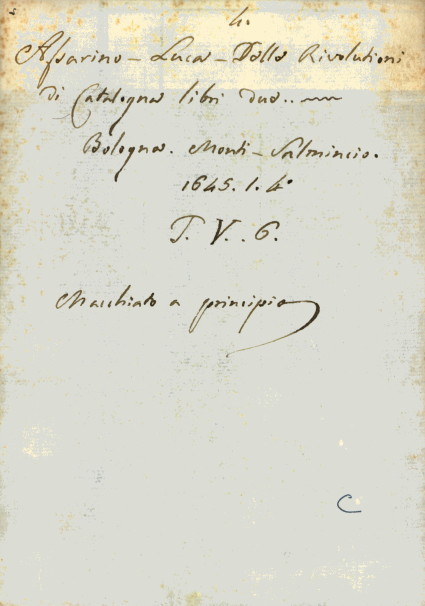 4.
Assarino - Luca - Delle Rivolutioni
di Catalogna libri due..
Bologna. Monti - Salmincio.
1645. 1. 4°
T. V.. 6.
Macchiato a principio
C